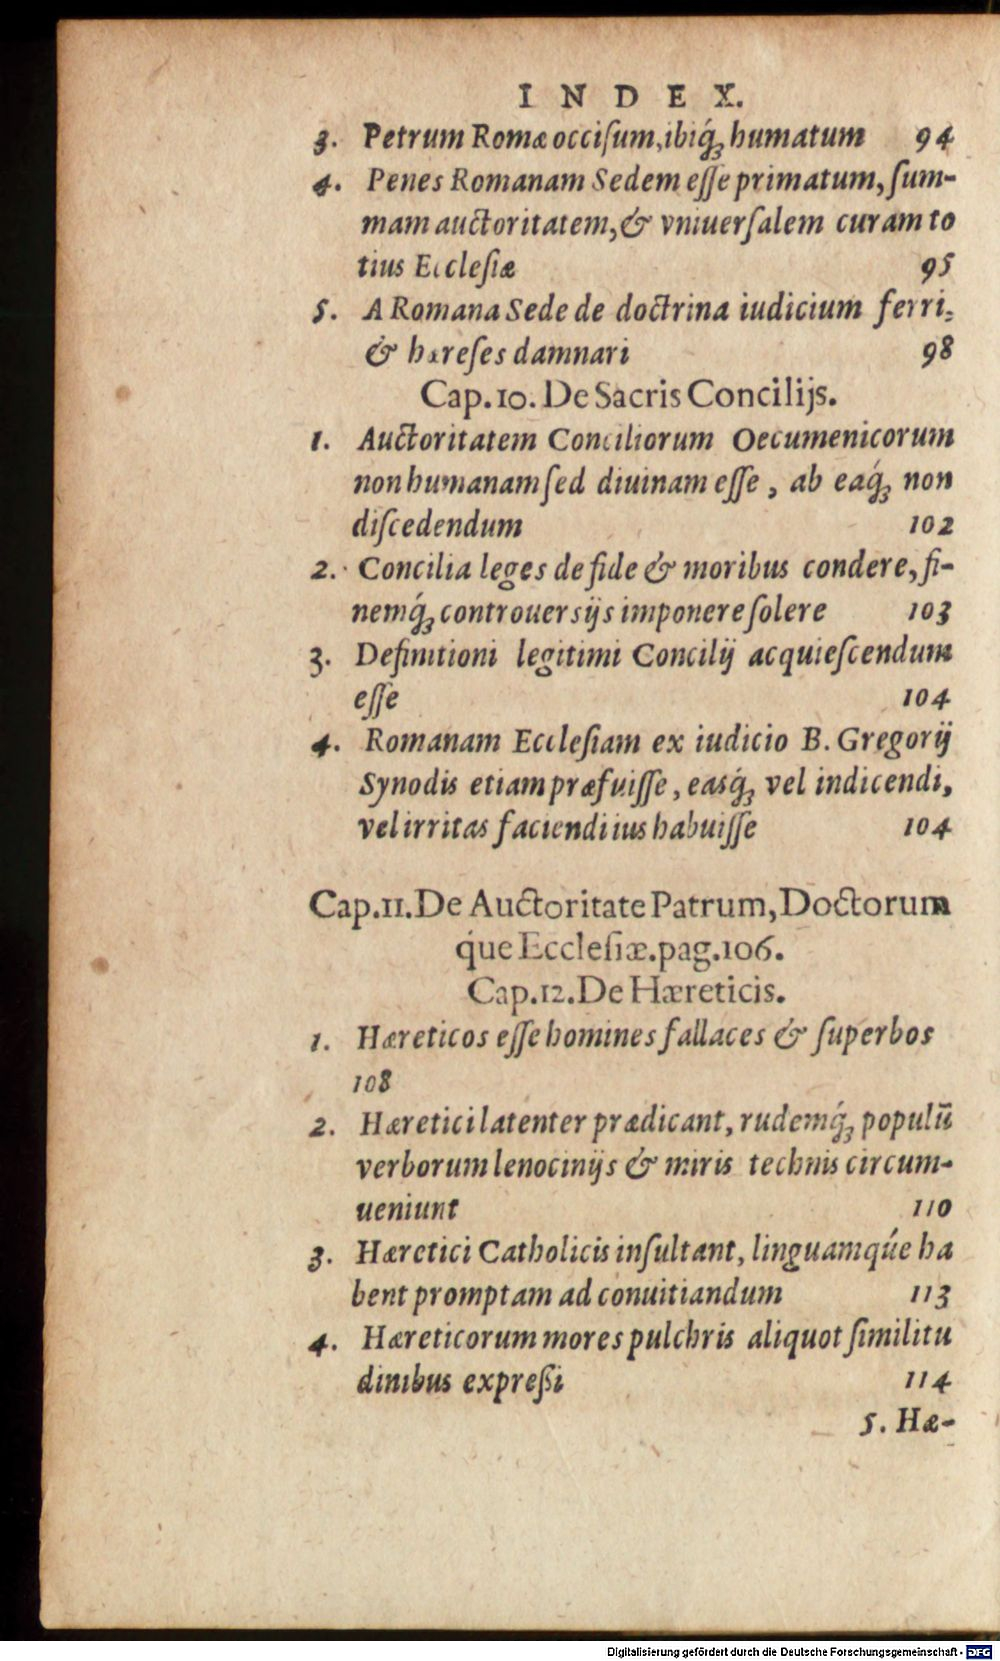 INDEX.
3. Petrum Romæ occiſum, ibiq́ꝫ humatum 94
4. Penes Romanam Sedem eſſe primatum, ſum-
mam auctoritatem, & vniuerſalem curam to
tius Eccleſiæ 95
5. A Romana Sede de doctrina iudicium ferri,
& hæreſes damnari 98
Cap. 10. De Sacris Concilijs.
1. Auctoritatem Conciliorum Oecumenicorum
non humanam ſed diuinam eſſe, ab eaq́ꝫ non
diſcedendum 102
2. Concilia leges de fide & moribus condere, fi-
nemq́ꝫ controuersijs imponere ſolere 103
3. Definitioni legitimi Concilij acquieſcendum
eſſe 104
4. Romanam Eccleſiam ex iudicio B. Gregorij
Synodis etiam præfuiſſe, easq́ꝫ vel indicendi,
vel irritas faciendi ius habuiſſe 104
Cap. 11. De Auctoritate Patrum, Doctorum
q́ue Eccleſiæ. pag. 106.
Cap. 12. De Hæreticis.
1. Hæreticos eſſe homines fallaces & ſuperbos
108
2. Hæretici latenter prædicant, rudemq́ꝫ populū
verborum lenocinijs & miris technis circum-
ueniunt 110
3. Hæretici Catholicis inſultant, linguamq́ue ha
bent promptam ad conuitiandum 113
4. Hæreticorum mores pulchris aliquot ſimilitu
dinibus expreßi 114
5. Hæ-
Digitalisierung gefördert durch die Deutsche Forschungsgemeinschaft - DFG